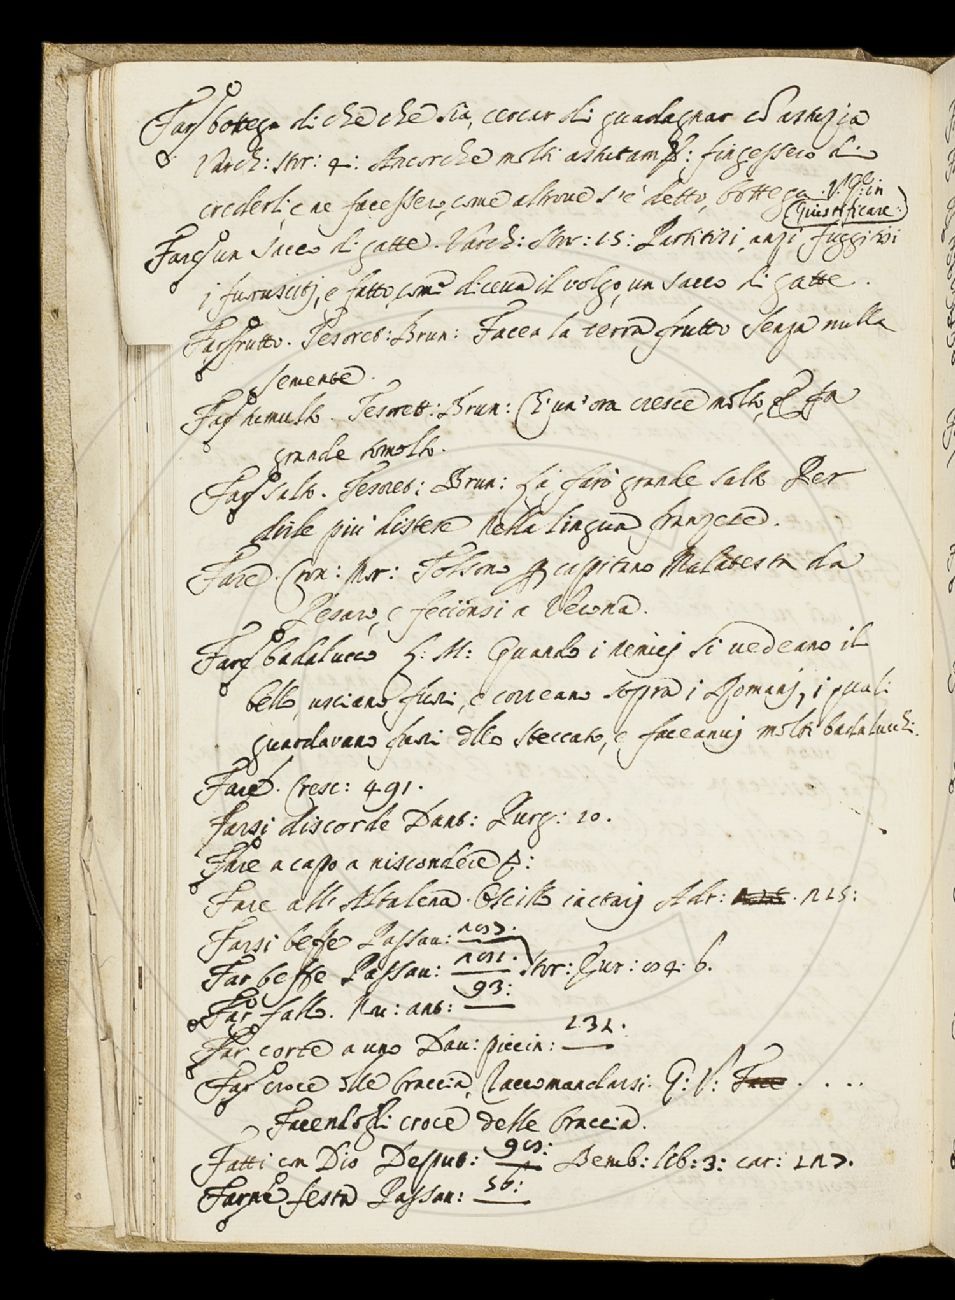 Far bottega di che che sia, cercar di guadagnar cõ astuzia
Varch: Stor: 4: Ancorche molti astutam.te fingessero di
crederli, e ne facessero, come altrove s'è detto, bottega. V: in
Giustificare.
Fare un sacco di gatte. Varch: Stor: 15: Partitisi, anzi fuggitisi
i fuorusciti, e fatto, come diceva il volgo, un sacco di gatte.
Far frutto. Tesoret: Brun: Facea la terra frutto senza nulla
semente.
Far tumulto. Tesorett: Brun: Ch'un'ora cresce molto, e fa
grande tomolto.
Far salto. Tesoret: Brun: Li farò grande salto Per
dirle più distese Nella lingua franzese.
Fare. Cron: Mor: Tolsono p capitano Malatesta da
Pesaro, e fecionsi a Verona.
Far badalucco L: M: Quando i nemici si vedeano il
bello, usciano fuori, e correano sopra i Romani, i quali
guardavano fuori dello steccato, e faceanvi molti badalucchi.
Fare. Cresc: 491.
Farsi discorde Dant: Purg: 10.
Fare a capo a niscondere
Fare all'Altalena. Oscillo iactari Adr: 125:
Farsi beffe Passav:
Far beffe Passav: Stor: Eur: 6.
Far fallo. Nov: ant: 93:
Far corte a uno Dav: piccin: 232.
Far croce delle braccia, Raccomandarsi. G: V: Face . . . .
Facendogli croce delle braccia.
Fatti con Dio Deput: Bemb: lib: 3: car: 127.
Farne festa Passav: 56: